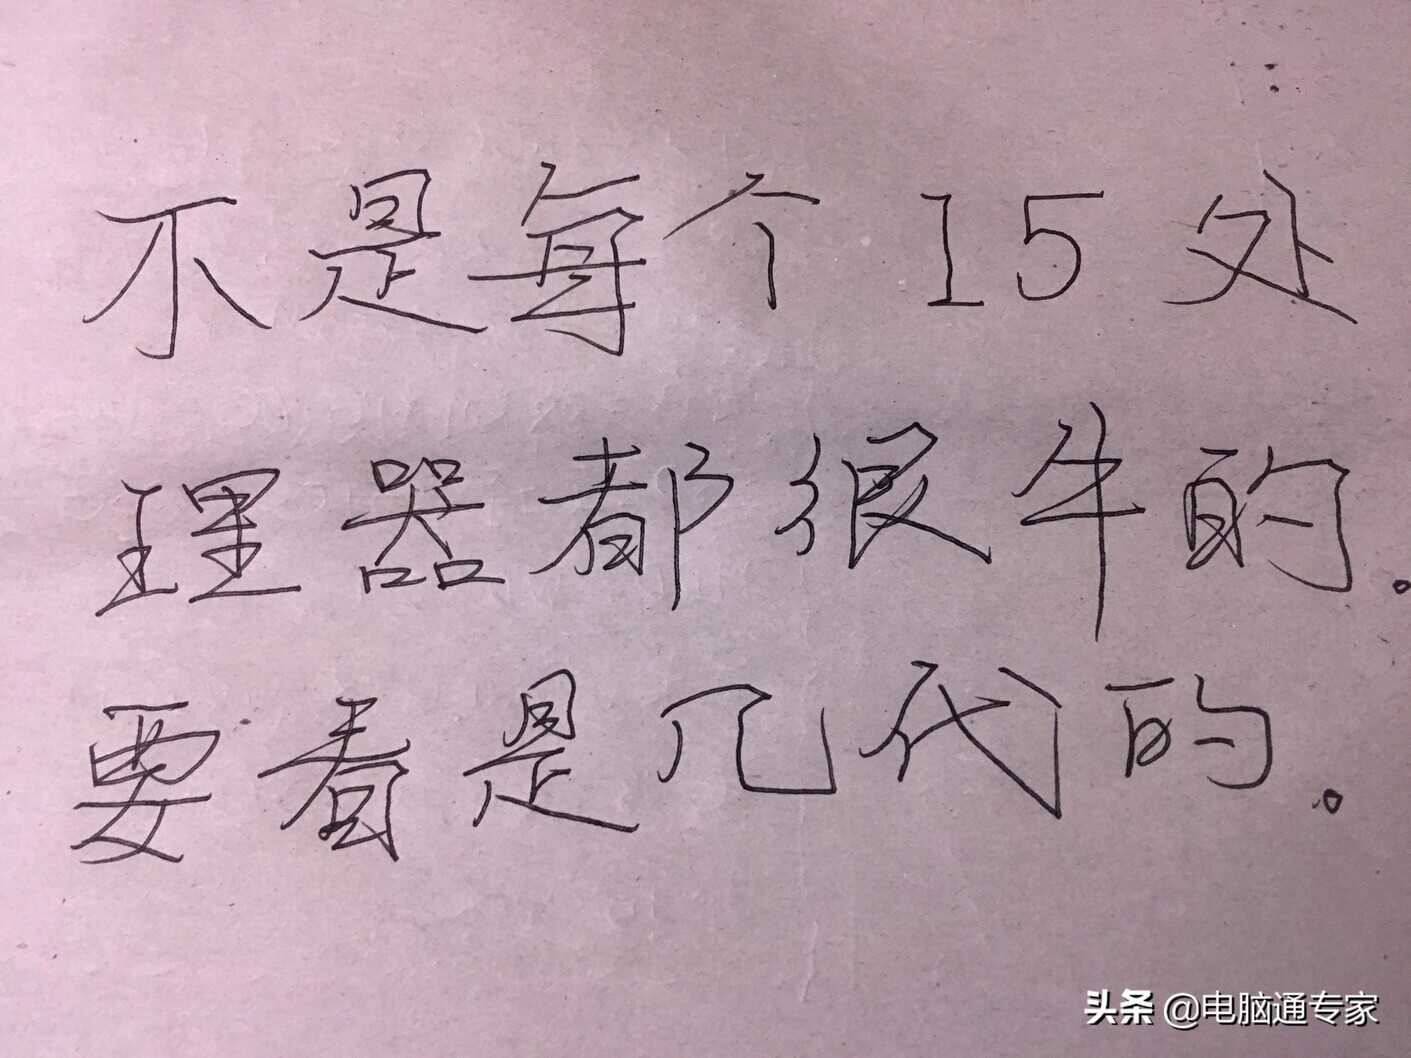 不是每个I5处
理器都很牛的.
要看是几代的.
头条 @电脑通专家